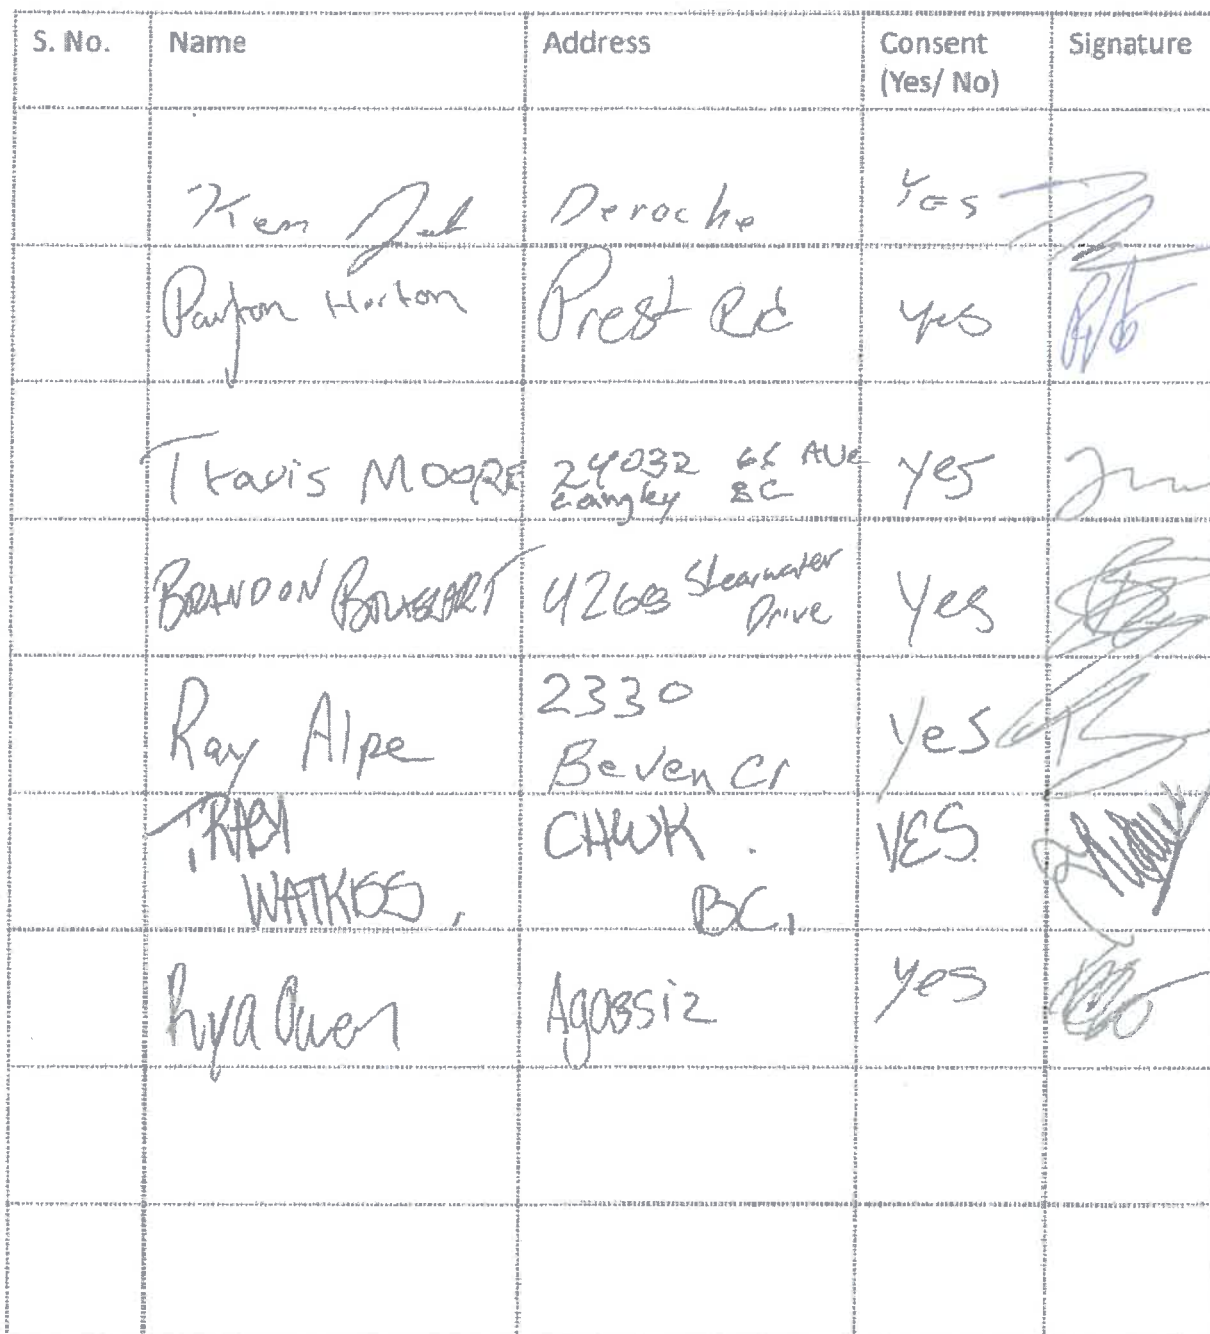 S. No. Name Address Consent (Yes/ No) Signature
Ken Deroche Yes
Payton Horton Prest Rd yes
Travis MOORE 24032 66 AVE Langley BC yes
BRANDON 4268 Shearwater Drive Yes
Ray Alpe 2330 Beven Cr Yes
WATKISS, CHWK. BC, YES
Rya Owen Agassiz yes